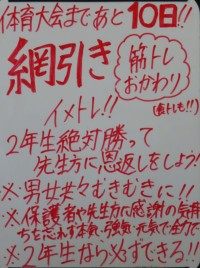 体育大会まであと10日!!
網引き
筋トレ
おかわり
(食トレも!!)
イメトレ!!
2年生絶対勝って
先生方に恩返しをしよう!
※男女共々むきむきに!!
※保護者や先生方に感謝の気持
ちを忘れず本気・強気・元気で全力で
※2年生なら必ずできる!!